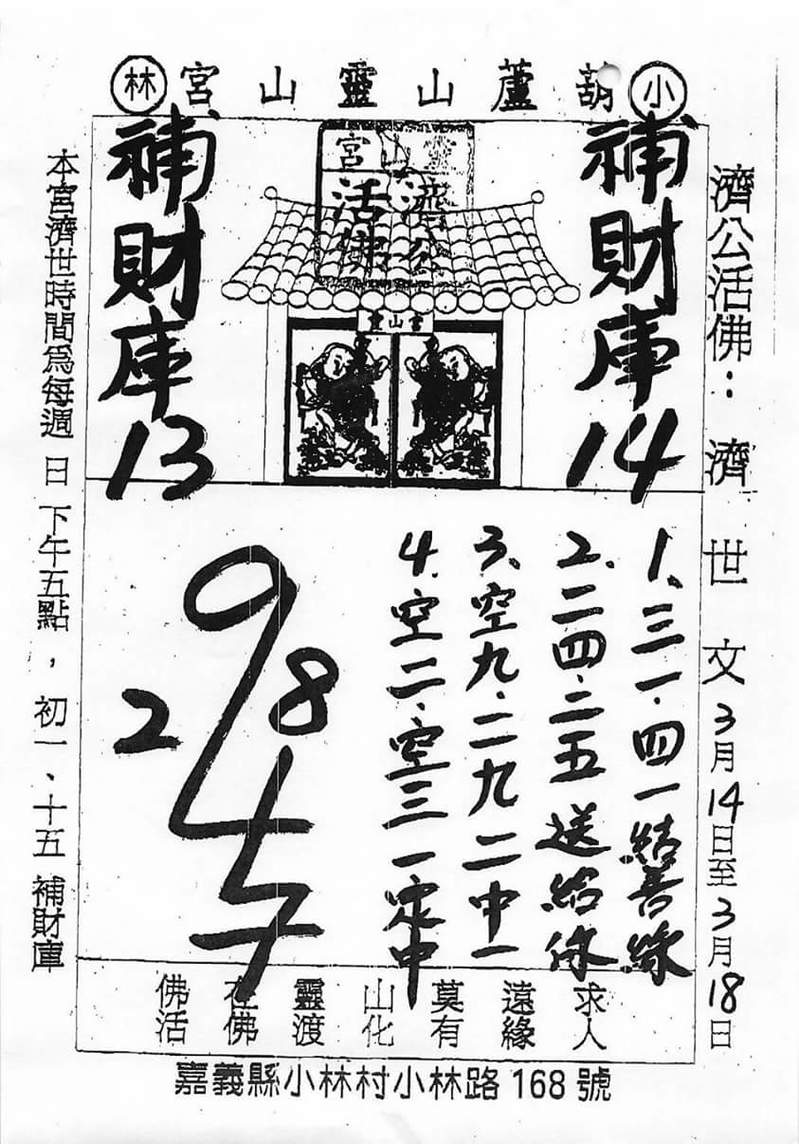 小葫蘆山靈山宮林
濟公活佛：濟世文3月14日至3月18日
補財庫14
宮山靈
濟公
活佛
宮山靈
補財庫13
1、三一.四一結善緣
2、二四.二五送給你
3、空九.二九二中一
4、空二.空三一定中
2
9
8
4
7
求人
遠緣
莫有
山化
靈渡
在佛
佛活
本宮濟世時間為每週日下午五點，初一、十五補財庫
嘉義縣小林村小林路168號